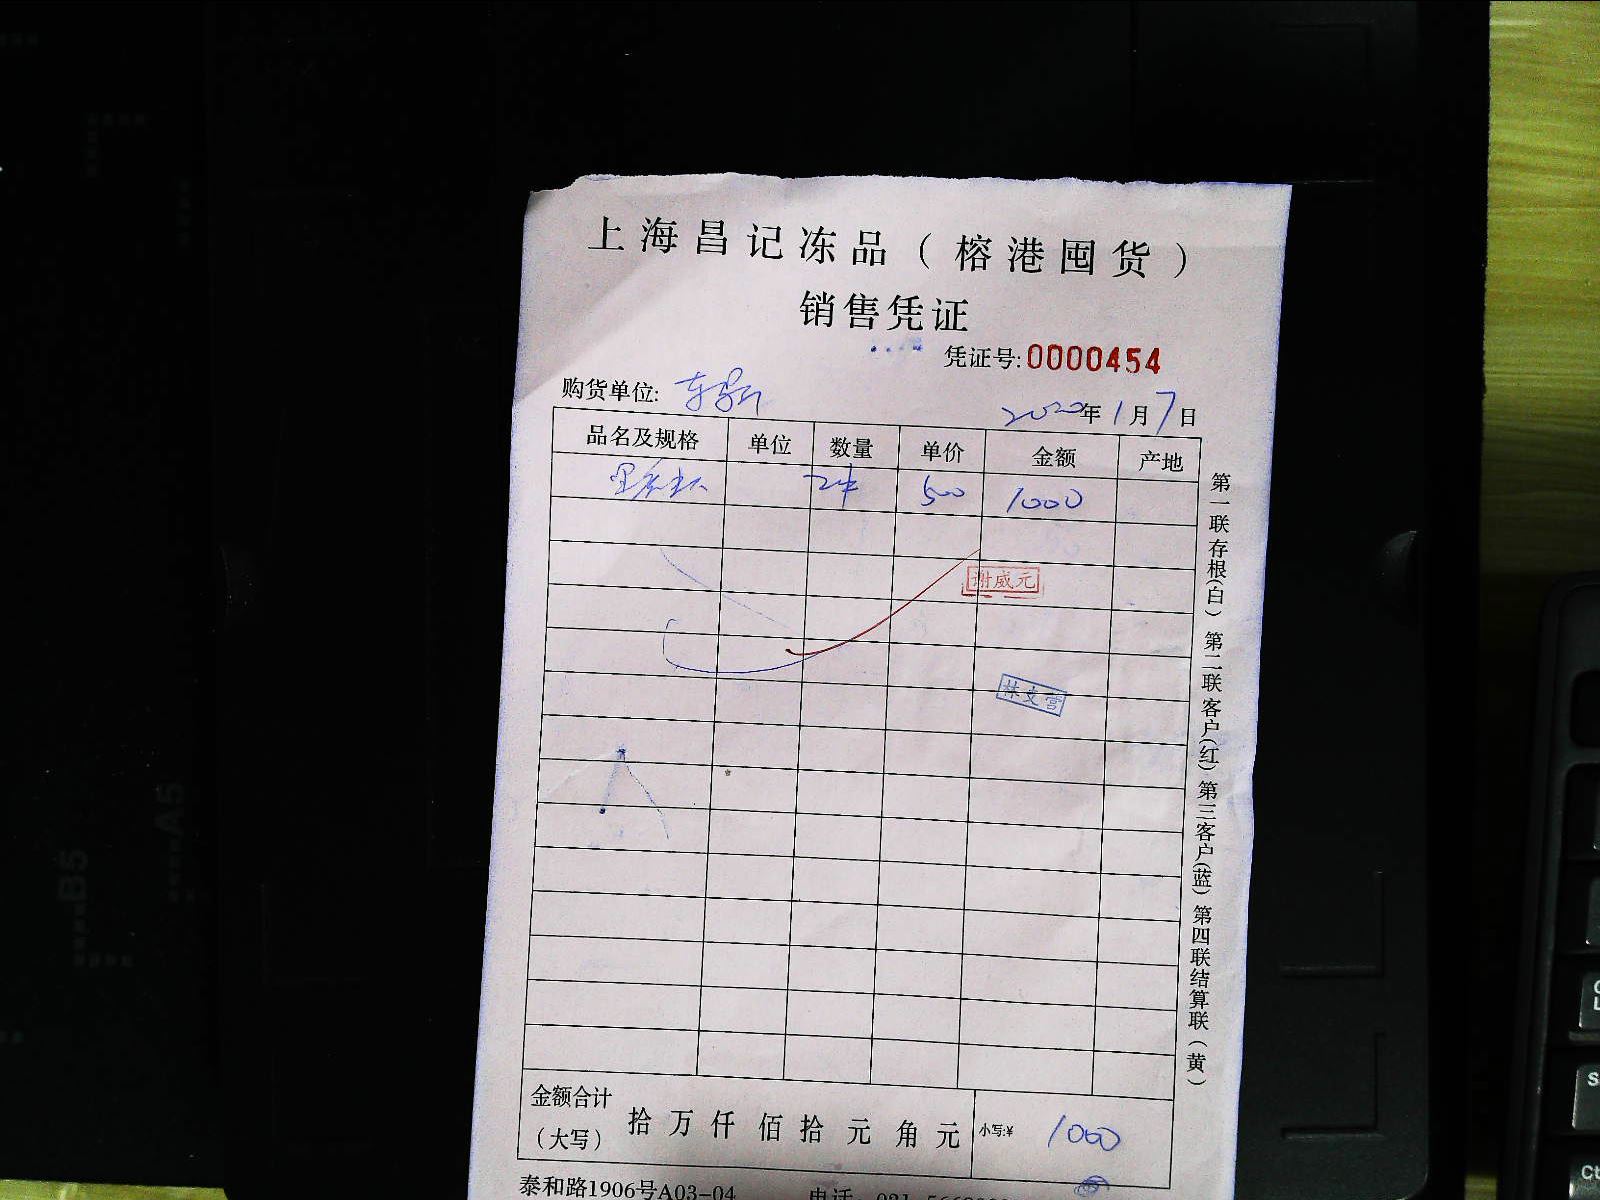 上海昌记冻品（榕港囤货）
销售凭证
凭证号:0000454
购货单位:
2020年1月7日
品名及规格 单位 数量 单价 金额 产地
2件 500 1000
谢威元
林文营
第一联存根(白) 第二联客户(红) 第三客户(蓝) 第四联结算联(黄)
金额合计 (大写) 拾万仟佰拾元角元 小写:¥ 1000
泰和路1906号A03-04 电话:021-566
B5
A5